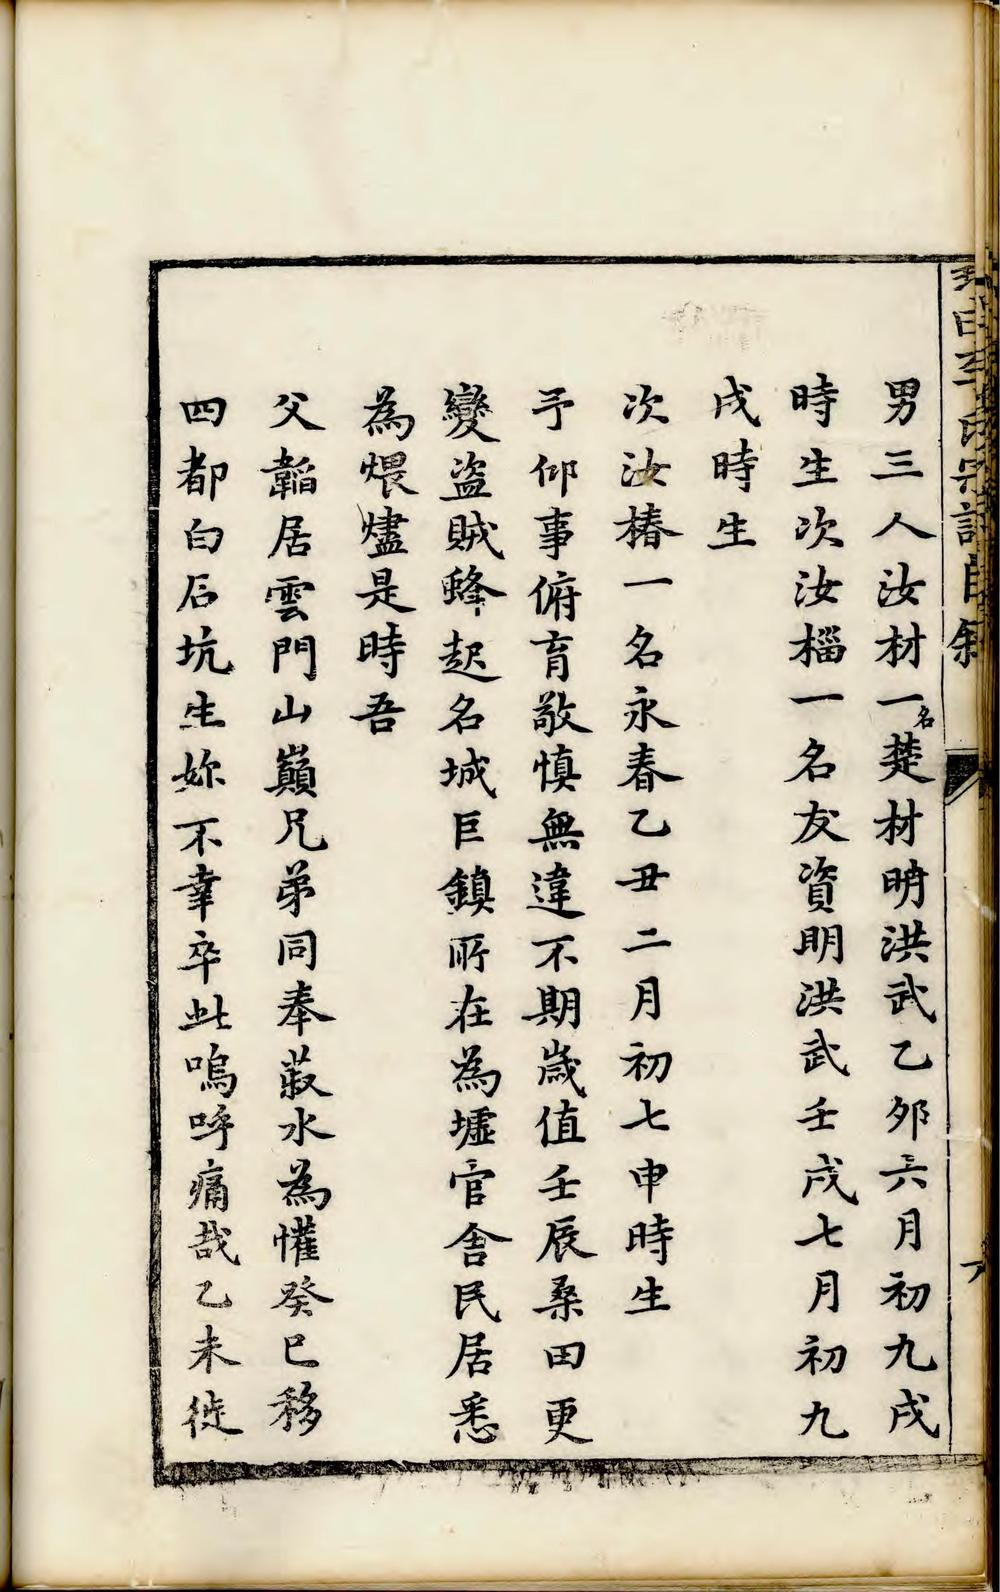 氏宗譜自敘
男三人汝材一名楚材明洪武乙夘六月初九戌
時生次汝椔一名友資明洪武壬戌七月初九
戌時生
次汝椿一名永春乙丑二月初七申時生
予仰事俯育敬慎無違不期歲值壬辰桑田更
變盜賊蜂起名城巨鎮所在為墟官舍民居悉
為煨燼是時吾
父韜居雲門山巔兄弟同奉菽水為懽癸巳移
四都白石坑生妳不幸卒此嗚呼痛哉乙未徙